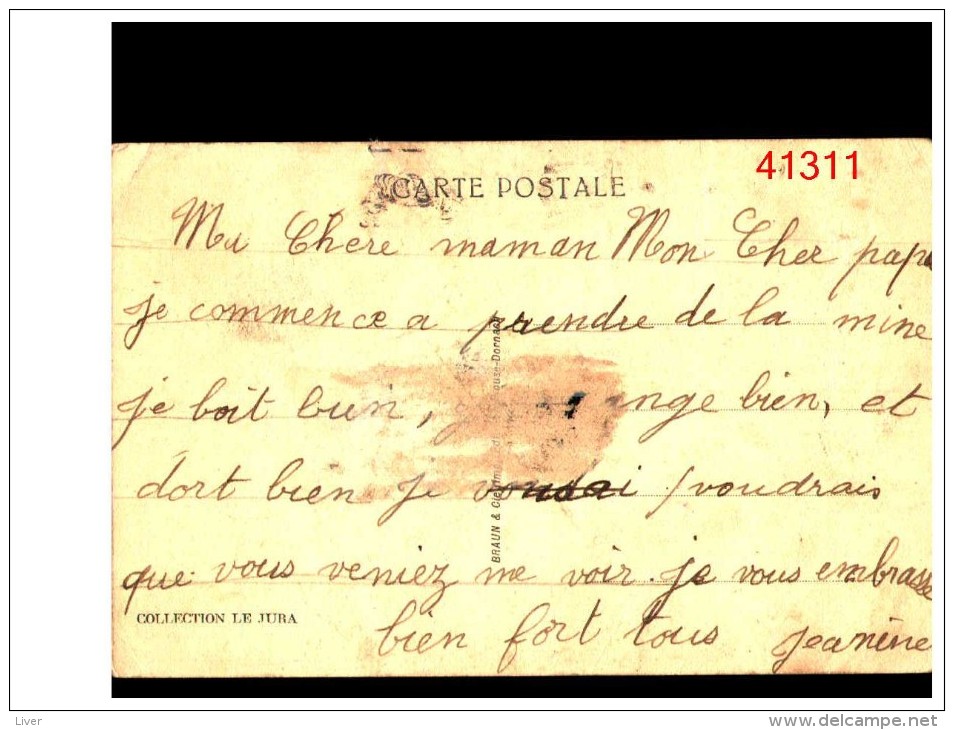 41311
CARTE POSTALE
Ma Chere maman Mon Cher papa
je commence a prendre de la mine
je boit bien, inge bien, et
dort bien je voudrais
que vous veniez me voir. je vous embrasse
bien fort tous Jeanine
BRAUN & Cie
COLLECTION LE JURA
Liver
www.delcampe.net